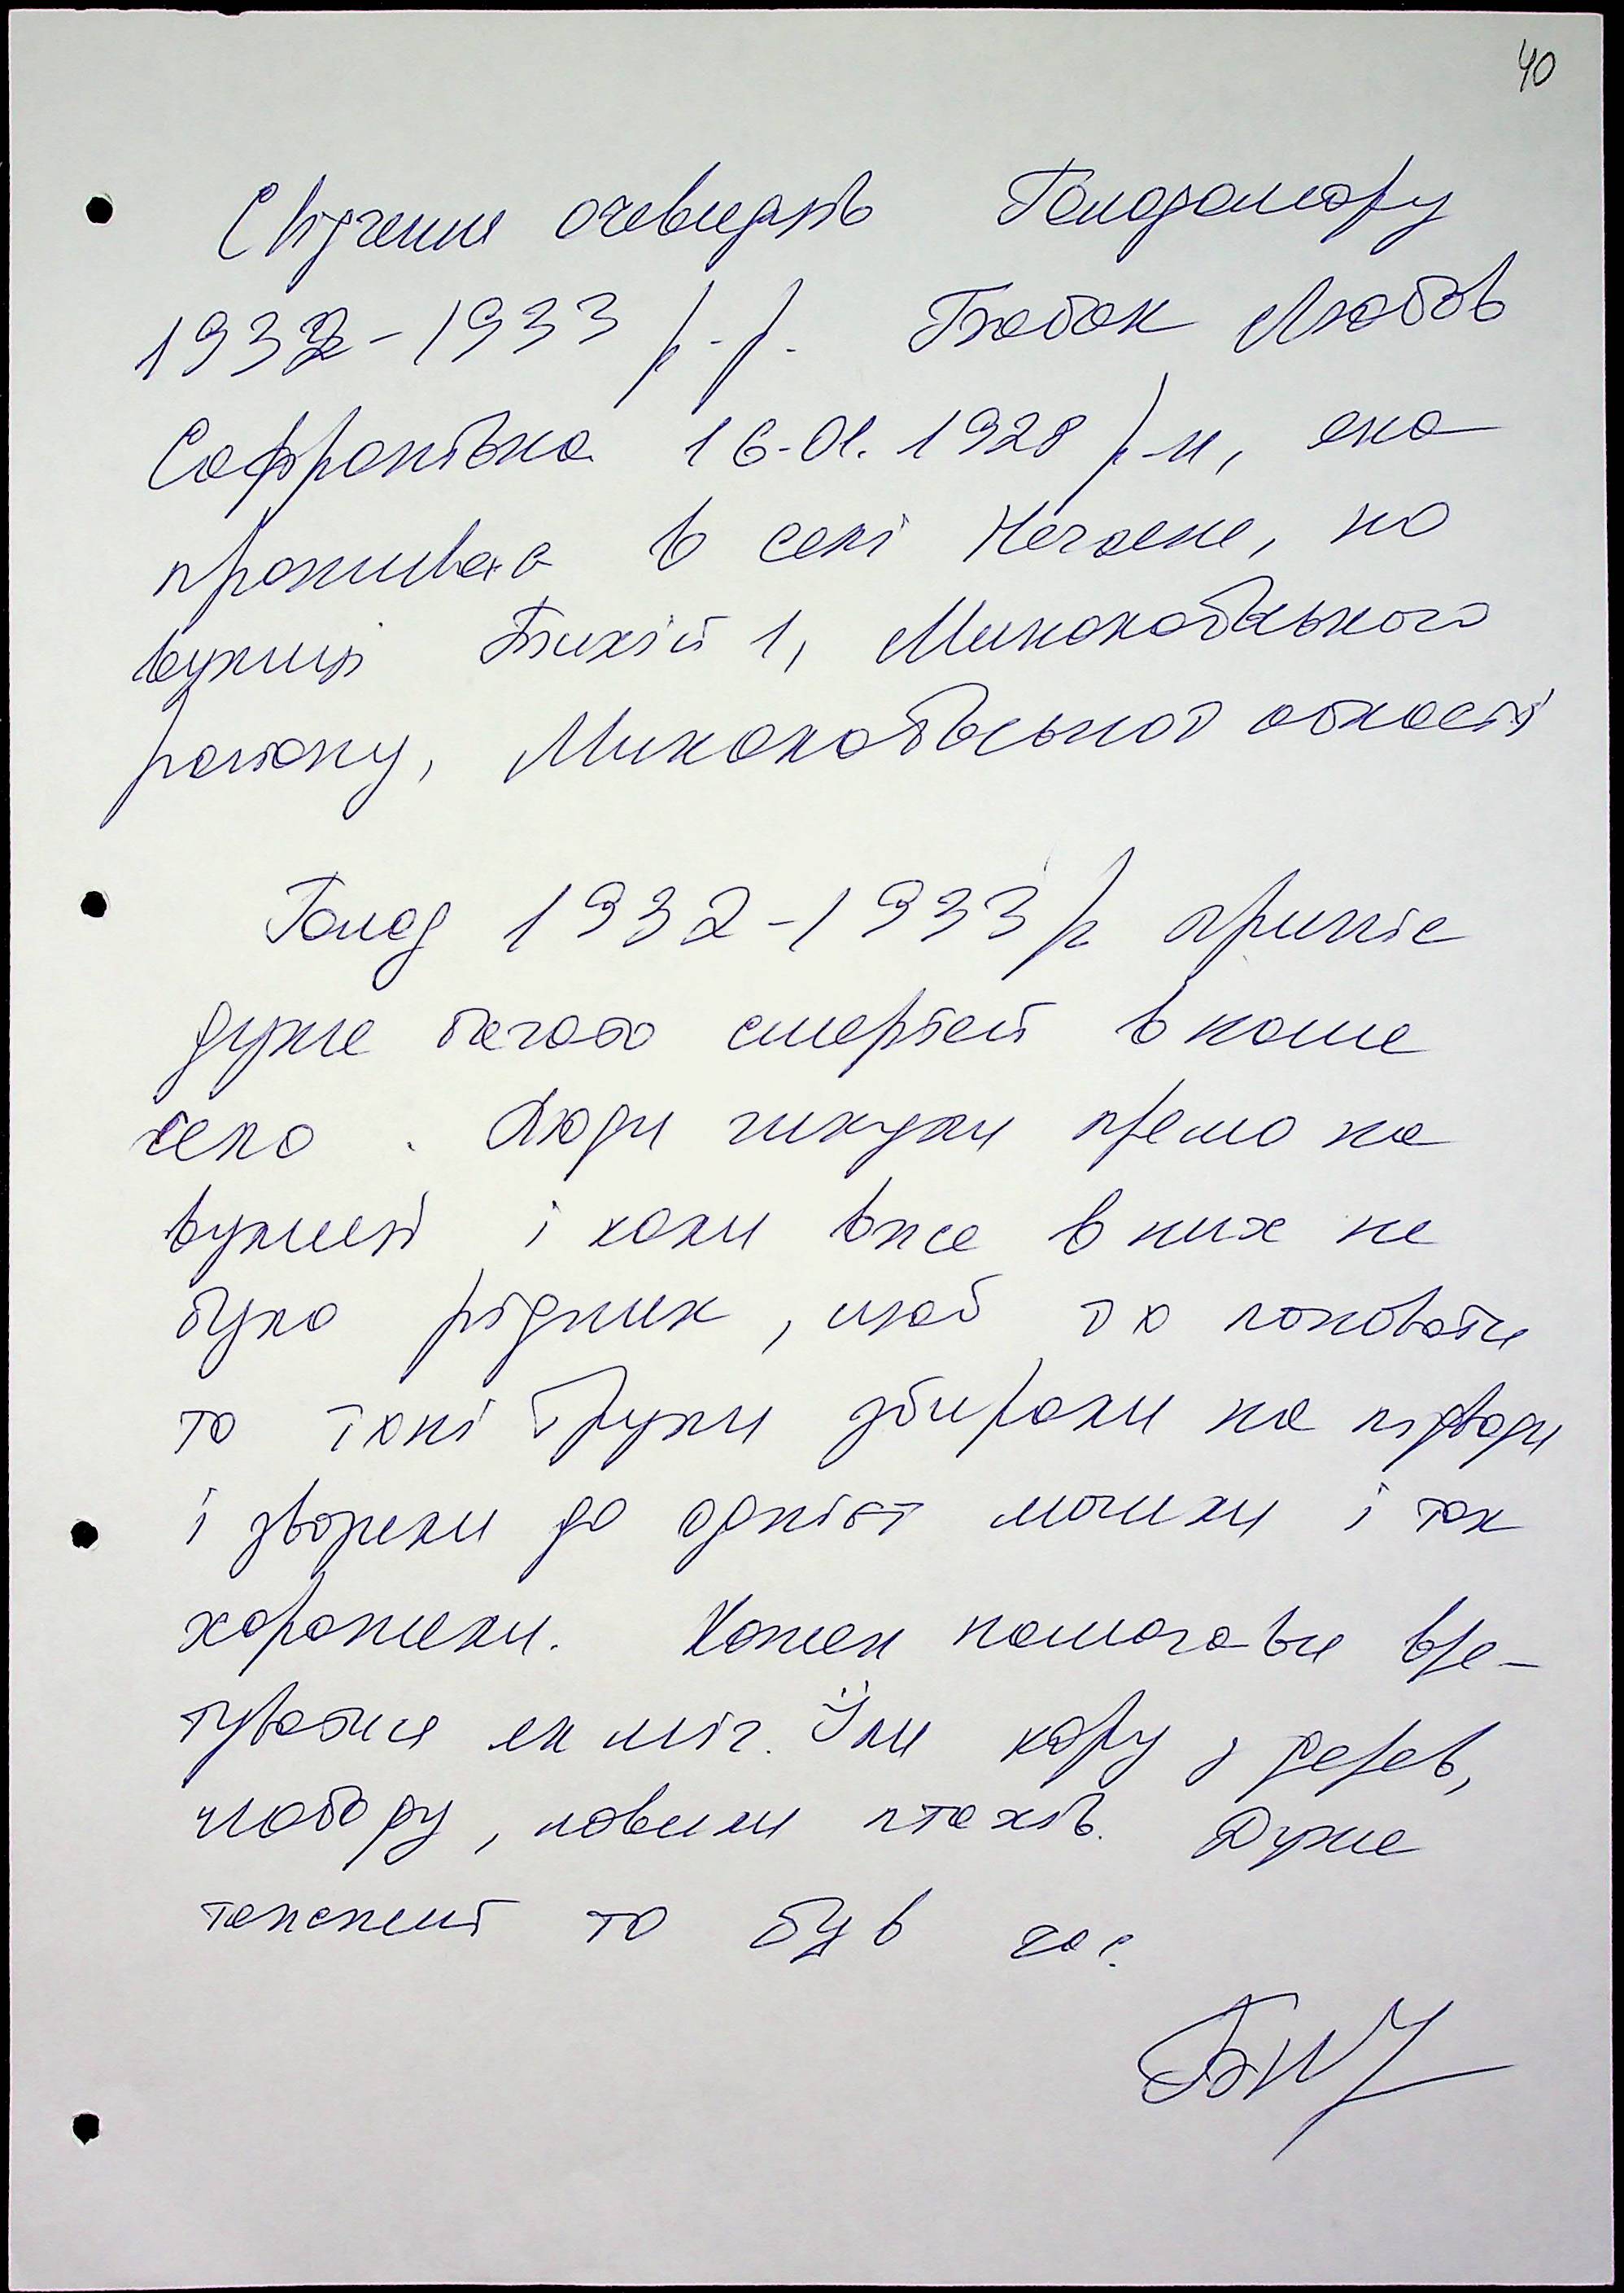 40
Свідчення очевидців Голодомору
1932-1933 р.р. Любов
Софронівна 16.01.1928 р.н, яка
проживає в селі Нечаяне, на
вулиці Тихій 1, Миколаївського
району, Миколаївської області
Голод 1932-1933 р приніс
дуже багато смертей в наше
село. Люди гинули прямо на
вулиці і коли вже в них не
було рідних, щоб то поховати
то такі трупи збирали на підводи
і звозили до однієї могили і так
хоронили. Кожен намагавсь вря-
туватися як міг. Їли кору з дерев,
лободу, ловили птахів. Дуже
тяжкий то був час.